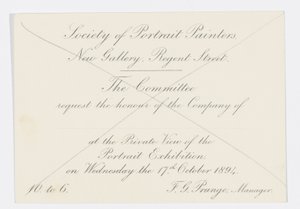 Society of Portrait Painters
New Gallery, Regent Street.
The Committee
request the honour of the Company of
at the Private View of the
Portrait Exhibition
on Wednesday the 17th October 1894.
10 to 6.
F. G. Prange, Manager.